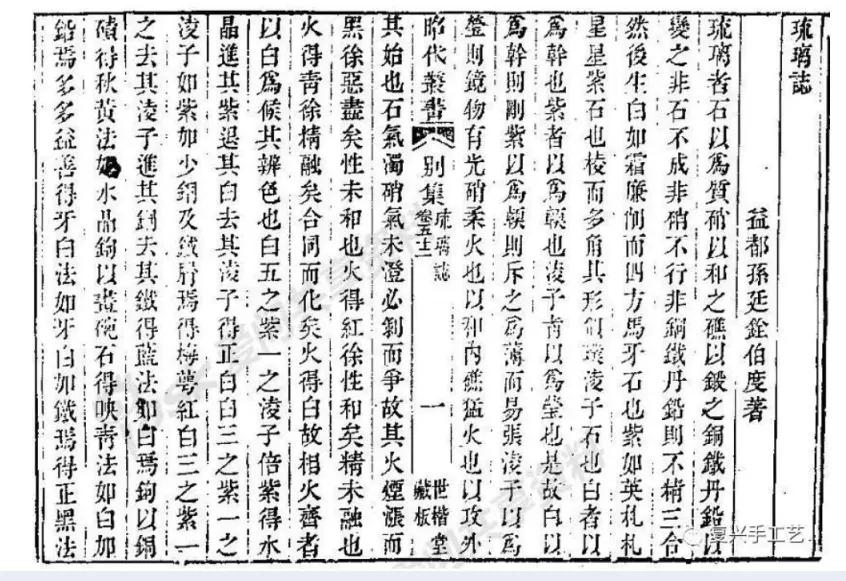 琉璃誌
益都孫廷銓伯度著
琉璃者石以爲質硝以和之礁以鍛之銅鐵丹鉛以
變之非石不成非硝不行非銅鐵丹鉛則不精三合
然後生白如霜廉削而四方馬牙石也紫如英札札
星星紫石也棱而多角其形似璞凌子石也白者以
爲幹也紫者以爲輭也凌子者以爲瑩也是故白以
爲幹則剛紫以爲輭則斥之爲薄而易張凌子以爲
瑩則鏡物有光硝柔火也以和內礁猛火也以攻外
昭代叢書 別集 琉璃誌 卷五十二 一 世楷堂 藏板
其始也石氣濁硝氣未澄必剝而爭故其火煙漲而
黑徐惡盡矣性未和也火得紅徐性和矣精未融也
火得青徐精融矣合同而化矣火得白故相火齊者
以白爲候其辨色也白五之紫一之凌子倍紫得水
晶進其紫退其白去其凌子得正白白三之紫一之
凌子如紫加少銅及鐵屑焉得梅萼紅白三之紫一
之去其凌子進其銅去其鐵得藍法如白焉鉤以銅
磧得秋黃法如水晶鉤以畫碗石得映青法如白加
鉛焉多多益善得牙白法如牙白加鐵焉得正黑法
复兴手工艺